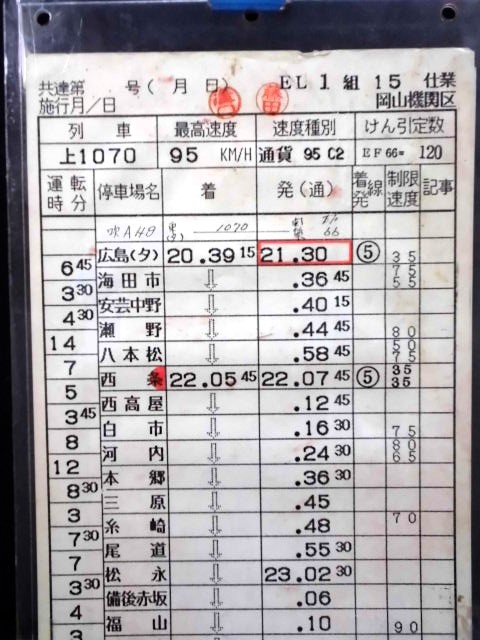 共達第 号( 月 日) EL 1 組 15 仕業
施行月/日 岡山機関区
列車 最高速度 速度種別 けん引定数
上1070 95 KM/H 通貨 95 C2 EF66= 120
運転時分 停車場名 着 発(通) 着発線 制限速度 記事
吹A48 1070 66
広島(タ) 20.39 15 21.30 ⑤ 35
6 45 75
海田市 ⇩ .36 45 55
3 30
安芸中野 ⇩ .40 15
4 30
瀬野 ⇩ .44 45 80
14 50
八本松 ⇩ .58 45 75
7
西条 22.05 45 22.07 45 ⑤ 35 35
5
西高屋 ⇩ .12 45
3 45
白市 ⇩ .16 30 75
8 80
河内 ⇩ .24 30 65
12
本郷 ⇩ .36 30
8 30
三原 ⇩ .45
3
糸崎 ⇩ .48 70
7 30
尾道 ⇩ .55 30
7
松永 ⇩ 23.02 30
3 30
備後赤坂 ⇩ .06
4
福山 ⇩ .10 90
3